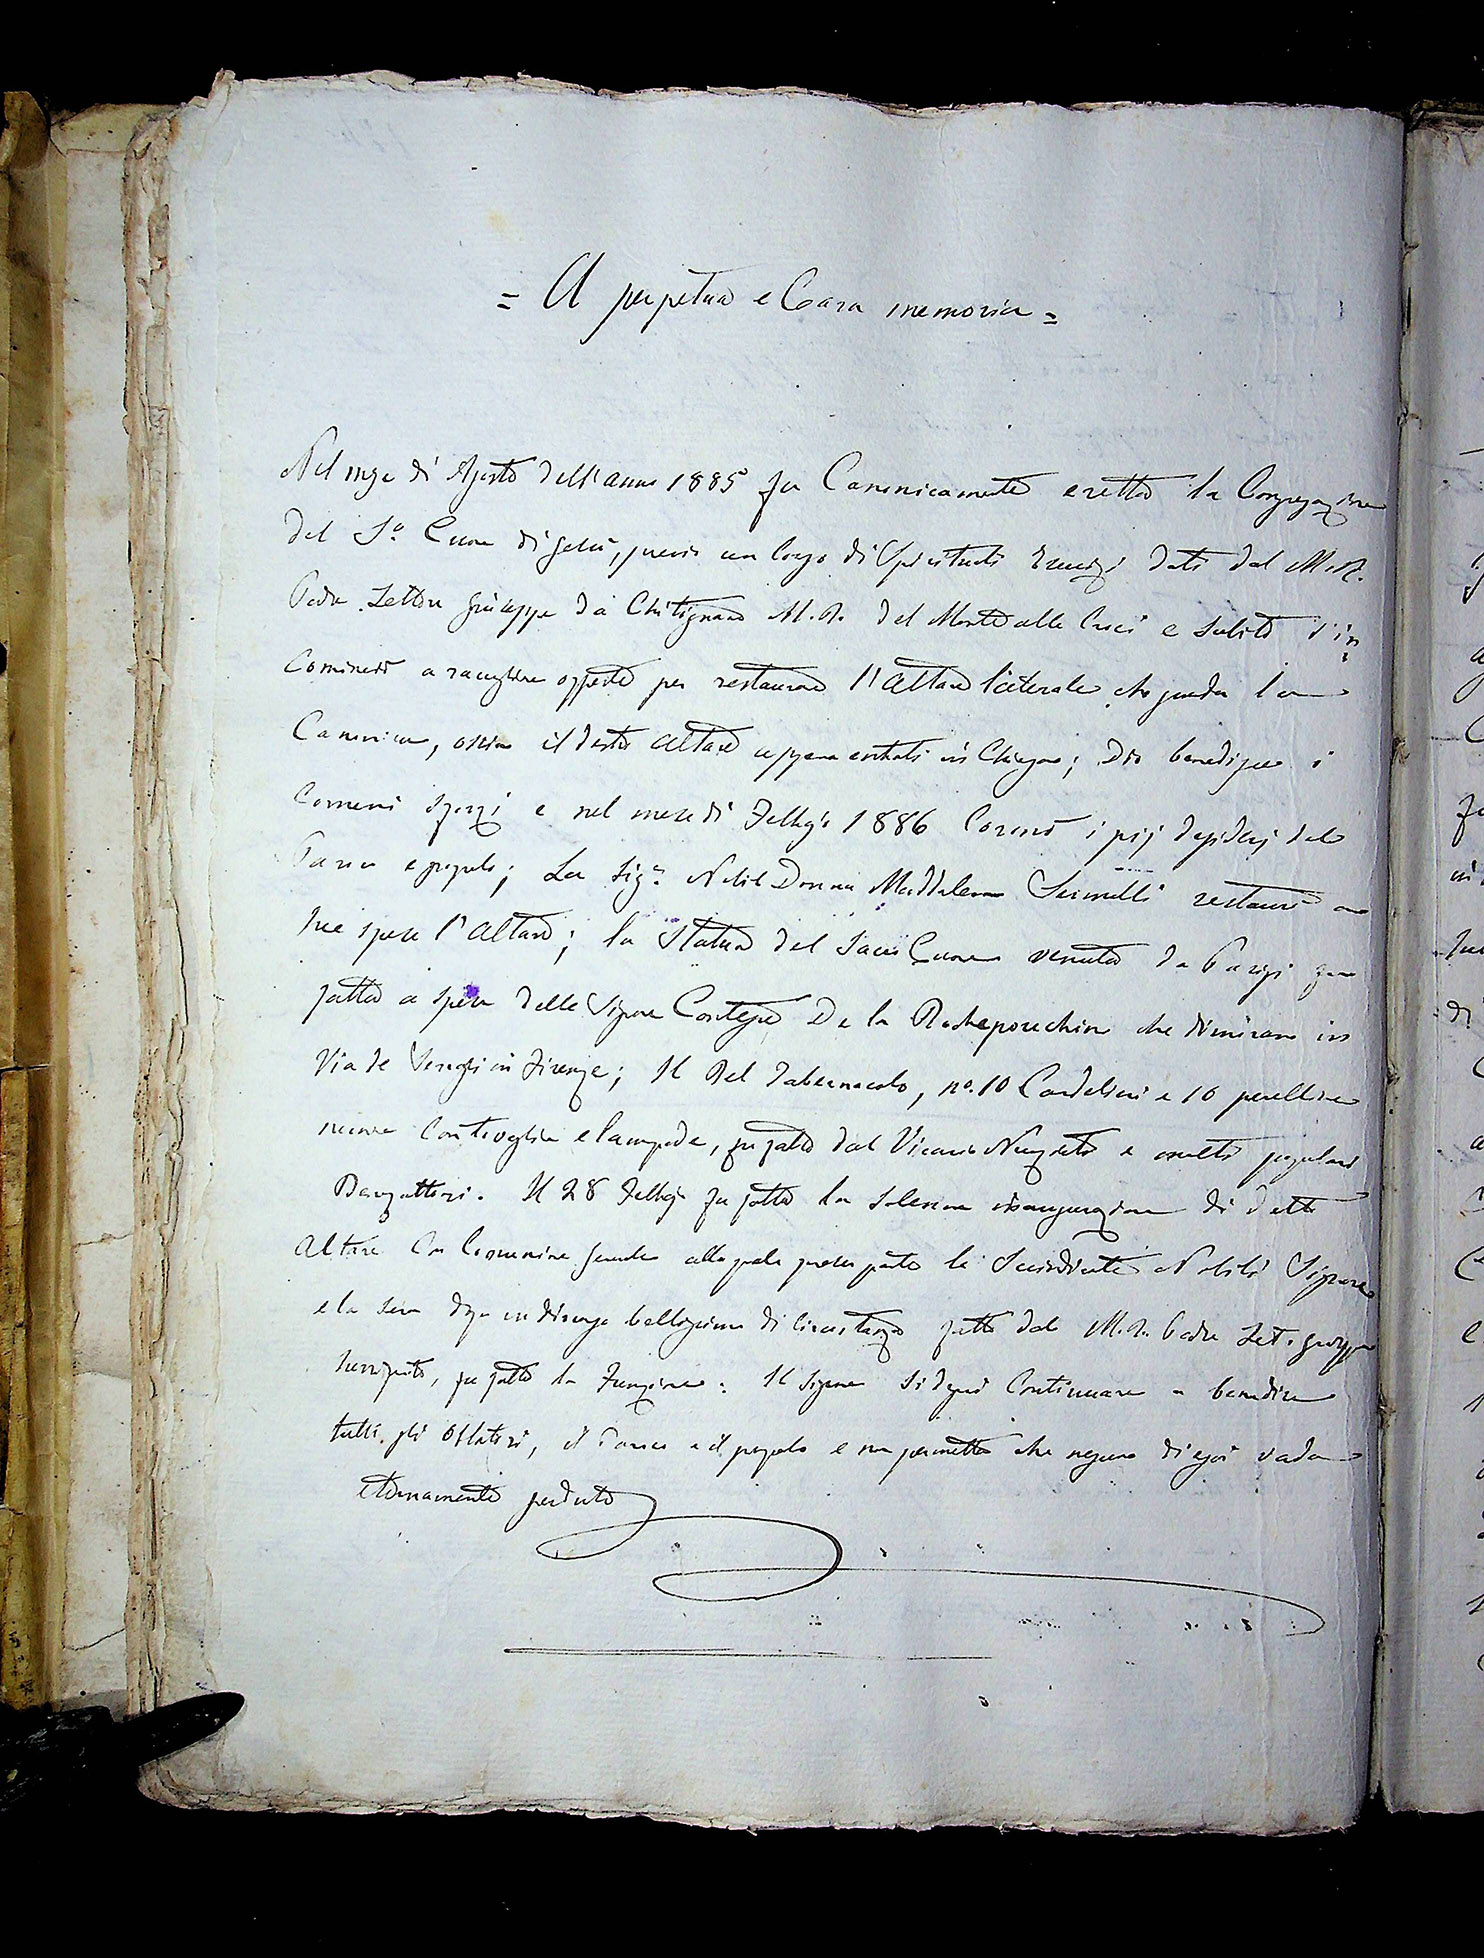 = A perpetua e Cara memoria =
Nel mese di Agosto dell'anno 1885 fu Canonicamente eretta la Congregazione
del S.o Cuore di Gesù, previo un Corso di Spirituali Esercizi dati dal M. R.
Padre Lettore Giuseppe da Chitignano M. R. del Monte alle Croci e subito s'in
Cominciò a raccogliere offerte per restaurare l'Altare laterale che guarda la
Canonica, ossia il destro Altare appena entrati in Chiesa; Dio benedisse i
Comuni sforzi e nel mese di Febbrjo 1886 Coronò i pij desiderj del
Parroco e popolo; La Sig.ra Nobil Donna Maddalena restaurò a
sue spese l'Altare; la Statua del Sacro Cuore venuta da Parigi fu
fatta a spese delle Signore Contesse De la che dimorano in
Via de Serragli in Firenze; Il Bel Tabernacolo, n.o 10 Candelieri e 10
nuove e lampade, fu fatto dal Vicario e molti popolani
Benefattori. Il 28 Febbrjo fu fatta la solenne inaugurazione di detto
Altare Con Comunione Generale alla quale presero parte le Nobili Signore
e la sera dopo un discorso bellissimo di Circostanza fatto dal M. R. Padre Let. Giuseppe
, fu fatta la Funzione. Il Signore si degni Continuare a benedire
tutti gli Oblatori, il Parroco e il popolo e non permetta che nessuno di essi vada
eternamente perduto